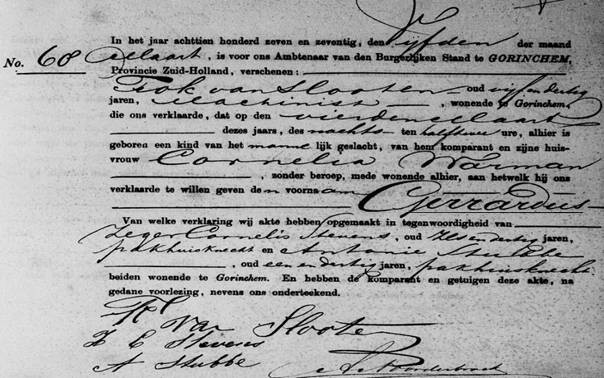 No. 68
In het jaar achttien honderd zeven en zeventig, den Vijfden der maand
Maart, is voor ons Ambtenaar van den Burgerlijken Stand te GORINCHEM,
Provincie Zuid-Holland, verschenen:
van Slooten oud vijf en dertig
jaren, Machinist, wonende te Gorinchem,
die ons verklaarde, dat op den vierden Maart
dezes jaars, des nachts ten half twee ure, alhier is
geboren een kind van het mannelijk geslacht, van hem komparant en zijne huis-
vrouw Cornelia
, zonder beroep, mede wonende alhier, aan hetwelk hij ons
verklaarde te willen geven den voornaam
Gerrardus
Van welke verklaring wij akte hebben opgemaakt in tegenwoordigheid van
Zeger Cornelis Stevens, oud en dertig jaren,
pakhuisknecht en Antonie Stubbe
, oud een en dertig jaren, pakhuisknecht
beiden wonende te Gorinchem. En hebben de komparant en getuigen deze akte, na
gedane voorlezing, nevens ons onderteekend.
van Slooten
Z C Stevens
A Stubbe